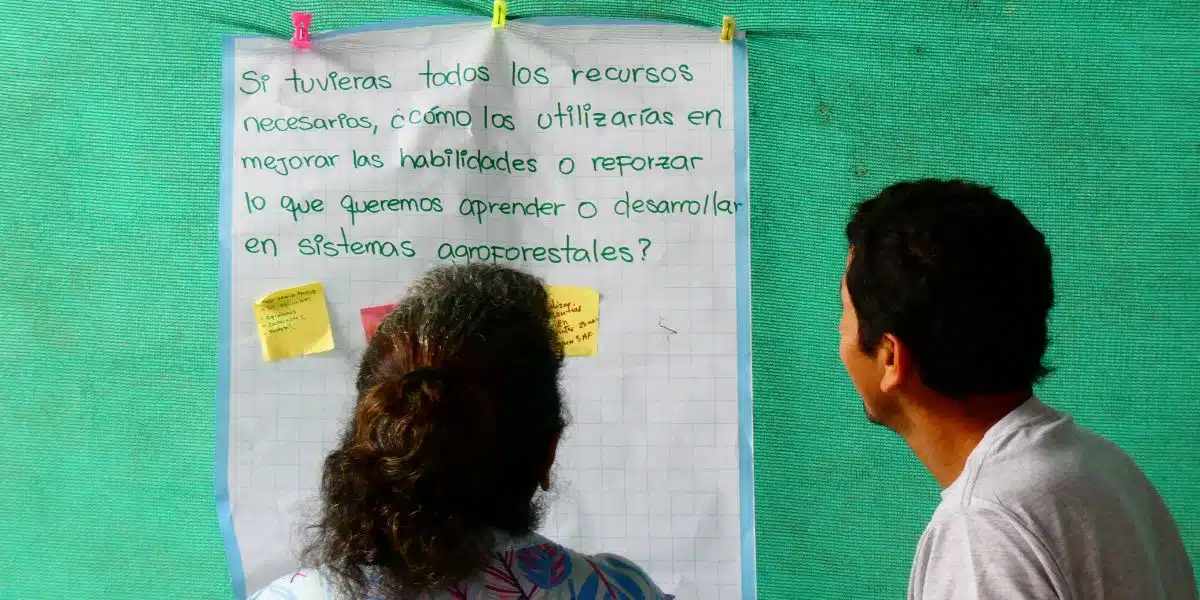 Si tuvieras todos los recursos
necesarios, ¿cómo los utilizarías en
mejorar las habilidades o reforzar
lo que queremos aprender o desarrollar
en sistemas agroforestales?
en
SAF